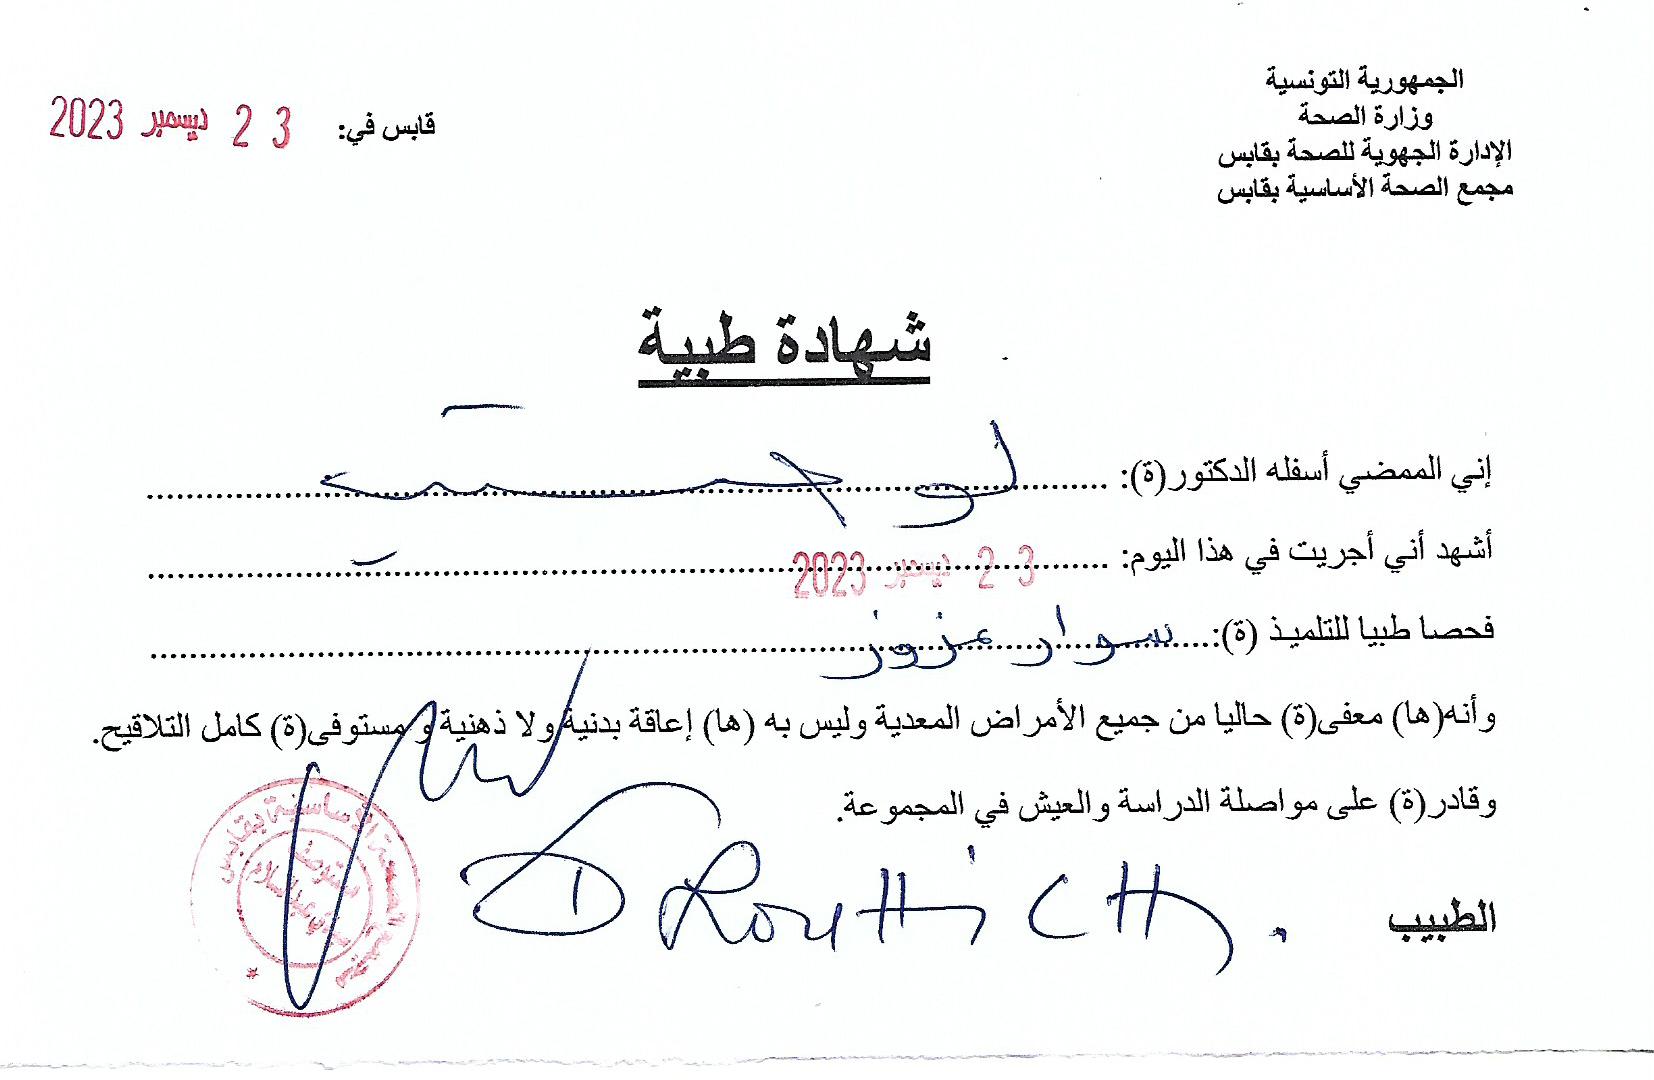 الجمهورية التونسية
وزارة الصحة
الإدارة الجهوية للصحة بقابس
مجمع الصحة الأساسية بقابس
قابس في: 23 ديسمبر 2023
شهادة طبية
إني الممضي أسفله الدكتور(ة): ........................
أشهد أني أجريت في هذا اليوم: 23 ديسمبر 2023
فحصا طبيا للتلميذ (ة): سوار عزوز
وأنه(ها) معفى(ة) حاليا من جميع الأمراض المعدية وليس به (ها) إعاقة بدنية ولا ذهنية و مستوفى(ة) كامل التلاقيح.
وقادر(ة) على مواصلة الدراسة والعيش في المجموعة.
الطبيب
الصحة الأساسية بقابس